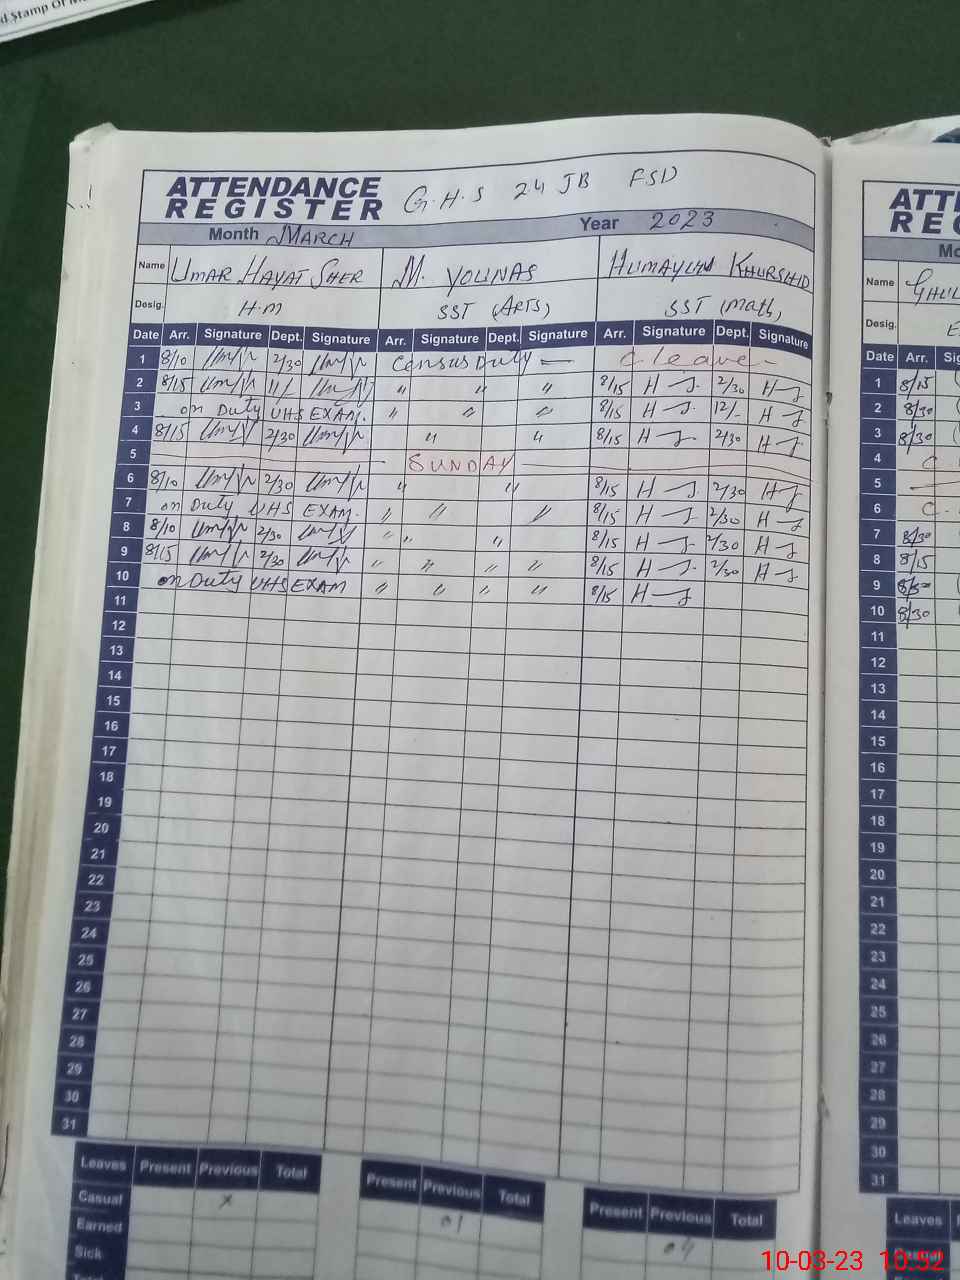 d Stamp Of
ATTENDANCE REGISTER G.H.S 24 JB FSD
Month MARCH Year 2023
Name UMAR HAYAT SHER M. YOUNAS HUMAYUN KHURSHID
Desig. H.M SST (ARTS) SST (Math)
Date Arr. Signature Dept. Signature Arr. Signature Dept. Signature Arr. Signature Dept. Signature
1 8/10 2/30 Census Duty — C leave -
2 8/15 11/ " " " 8/15 H 2/30 H
3 on Duty UHS EXAM. " " " 8/15 H 12/- H
4 8/15 2/30 " " 8/15 H 2/30 H
5 SUNDAY
6 8/10 2/30 " " 8/15 H 2/30 H
7 on Duty UHS EXAM. " " " 8/15 H 2/30 H
8 8/10 2/30 " " " 8/15 H 2/30 H
9 8/15 2/30 " " " " 8/15 H 2/30 H
10 on Duty UHS EXAM " " " " 8/15 H
11
12
13
14
15
16
17
18
19
20
21
22
23
24
25
26
27
28
29
30
31
Leaves Present Previous Total Present Previous Total Present Previous Total
Casual x 01 04
Earned
Sick
ATTE
REG
Mo
Name GHUL
Desig. E
Date Arr. Sig
1 8/15
2 8/30
3 8/30
4 C.
5
6 C.
7 8/30
8 8/15
9
10 8/30
11
12
13
14
15
16
17
18
19
20
21
22
23
24
25
26
27
28
29
30
31
Leaves
10-03-23 10:52